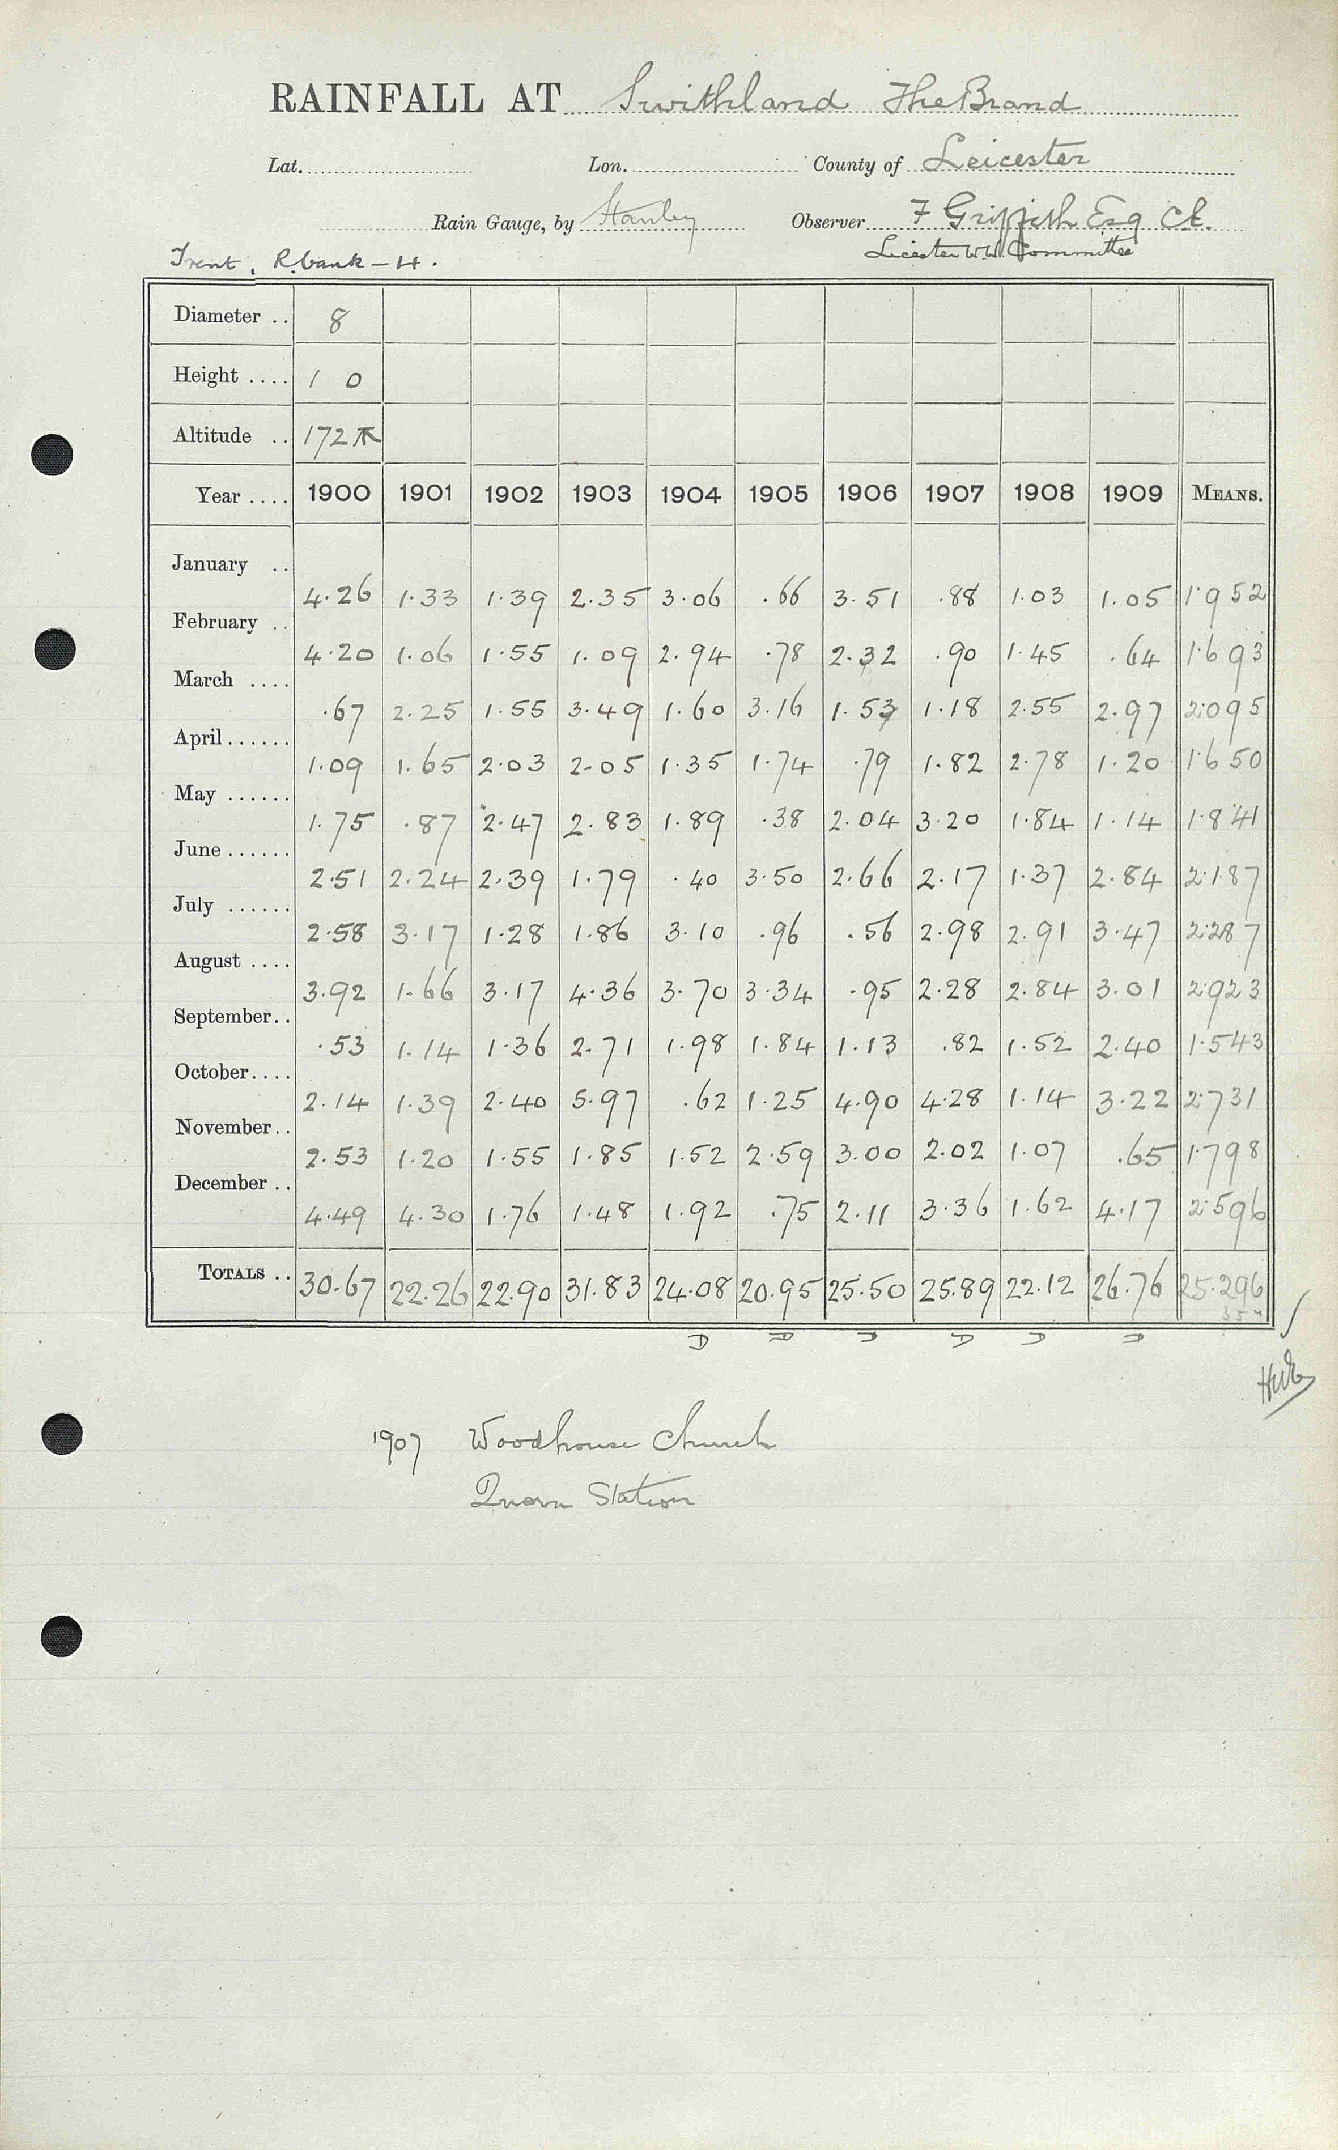 RAINFALL AT Swithland The Brand
Lat. Lon. County of Leicester
Rain Gauge, by Stanley Observer F Griffith Esq C.E.
Leicester W.W. Committee
Trent, R. bank - 14.
Diameter .. 8
Height .... 1 0
Altitude .. 172
Year .... 1900 1901 1902 1903 1904 1905 1906 1907 1908 1909 MEANS.
January .. 4.26 1.33 1.39 2.35 3.06 .66 3.51 .88 1.03 1.05 1.952
February .. 4.20 1.06 1.55 1.09 2.94 .78 2.32 .90 1.45 .64 1.693
March .... .67 2.25 1.55 3.49 1.60 3.16 1.53 1.18 2.55 2.97 2.095
April...... 1.09 1.65 2.03 2.05 1.35 1.74 .79 1.82 2.78 1.20 1.650
May ...... 1.75 .87 2.47 2.83 1.89 .38 2.04 3.20 1.84 1.14 1.841
June...... 2.51 2.24 2.39 1.79 .40 3.50 2.66 2.17 1.37 2.84 2.187
July ...... 2.58 3.17 1.28 1.86 3.10 .96 .56 2.98 2.91 3.47 2.287
August .... 3.92 1.66 3.17 4.36 3.70 3.34 .95 2.28 2.84 3.01 2.923
September.. .53 1.14 1.36 2.71 1.98 1.84 1.13 .82 1.52 2.40 1.543
October.... 2.14 1.39 2.40 5.97 .62 1.25 4.90 4.28 1.14 3.22 2.731
November.. 2.53 1.20 1.55 1.85 1.52 2.59 3.00 2.02 1.07 .65 1.798
December .. 4.49 4.30 1.76 1.48 1.92 .75 2.11 3.36 1.62 4.17 2.596
TOTALS .. 30.67 22.26 22.90 31.83 24.08 20.95 25.50 25.89 22.12 26.76 25.296
1907 Woodhouse Church
Quorn Station